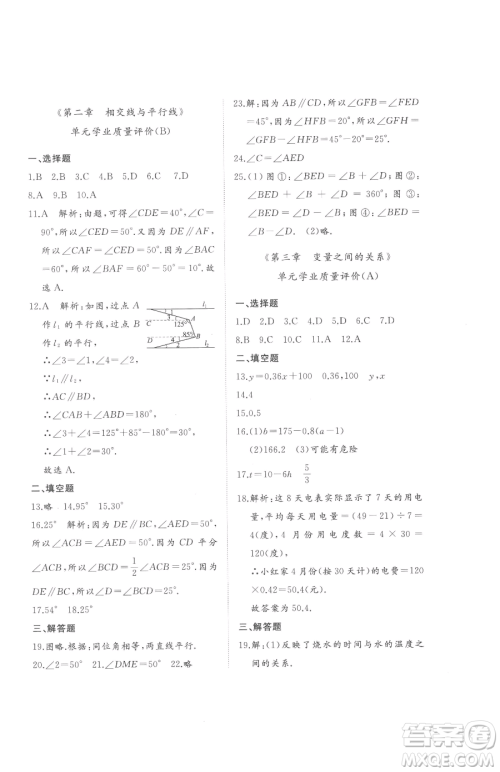 《第二章 相交线与平行线》
单元学业质量评价(B)
一、选择题
1.B 2.B 3.C 4.B 5.C 6.C 7.D
8.A 9.B 10.A
11.A 解析:由题,可得∠CDE=40°,∠C=
90°,∴∠CED=50°.又∵DE∥AF,
∴∠CAF=∠CED=50°.∵∠BAC
=60°,∴∠BAF=60°-50°=10°.故选
A.
12.A 解析:如图,过点A
作l₁的平行线,过点B
作l₁的平行,
∴∠3=∠1,∠4=∠2.
∵l₁∥l₂,
∴AC∥BD.
∴∠CAB+∠ABD=180°.
∴∠3+∠4=125°+85°-180°=30°.
∴∠1+∠2=30°.
故选A.
二、填空题
13.略 14.95° 15.30°
16.25° 解析:∵DE∥BC,∠AED=50°,
∴∠ACB=∠AED=50°.∵CD平分
∠ACB,∴∠BCD=1/2∠ACB=25°.
∵DE∥BC,∴∠EDC=∠BCD=25°.
17.54° 18.25°
三、解答题
19.图略.根据:同位角相等,两直线平行.
20.∠2=50° 21.∠DME=50° 22.略
23.解:∵AB∥CD,∴∠GFB=∠FED=
45°.∵∠HFB=20°,∴∠GFH=∠GFB
-∠HFB=45°-20°=25°.
24.∠C=∠AED
25.(1)图①:∠BED=∠B+∠D;图②:
∠B+∠BED+∠D=360°;图③:
∠BED=∠D-∠B;图④:∠BED=∠B
-∠D. (2)略
《第三章 变量之间的关系》
单元学业质量评价(A)
一、选择题
1.D 2.D 3.C 4.C 5.C 6.B 7.D
8.B 9.C 10.C 11.A 12.A
二、填空题
13.y=0.36x+0 0.36,100 y,x
14.4
15.0.5
16.(1)b=175-0.8(a-15)
(2)166.2 (3)可能有危险
17.t=10-6h 5/3
18.解析:这8天电表实际显示了7天的用电
量,平均每天用电量=(49-21)÷7=
4(度),4月份用电度数=4×30=
120(度),
∴小红家4月份的电费=120×
0.42=50.4(元).
故答案为50.4.
三、解答题
19.解:(1)反映了烧水的时间与水的温度之
间的关系.